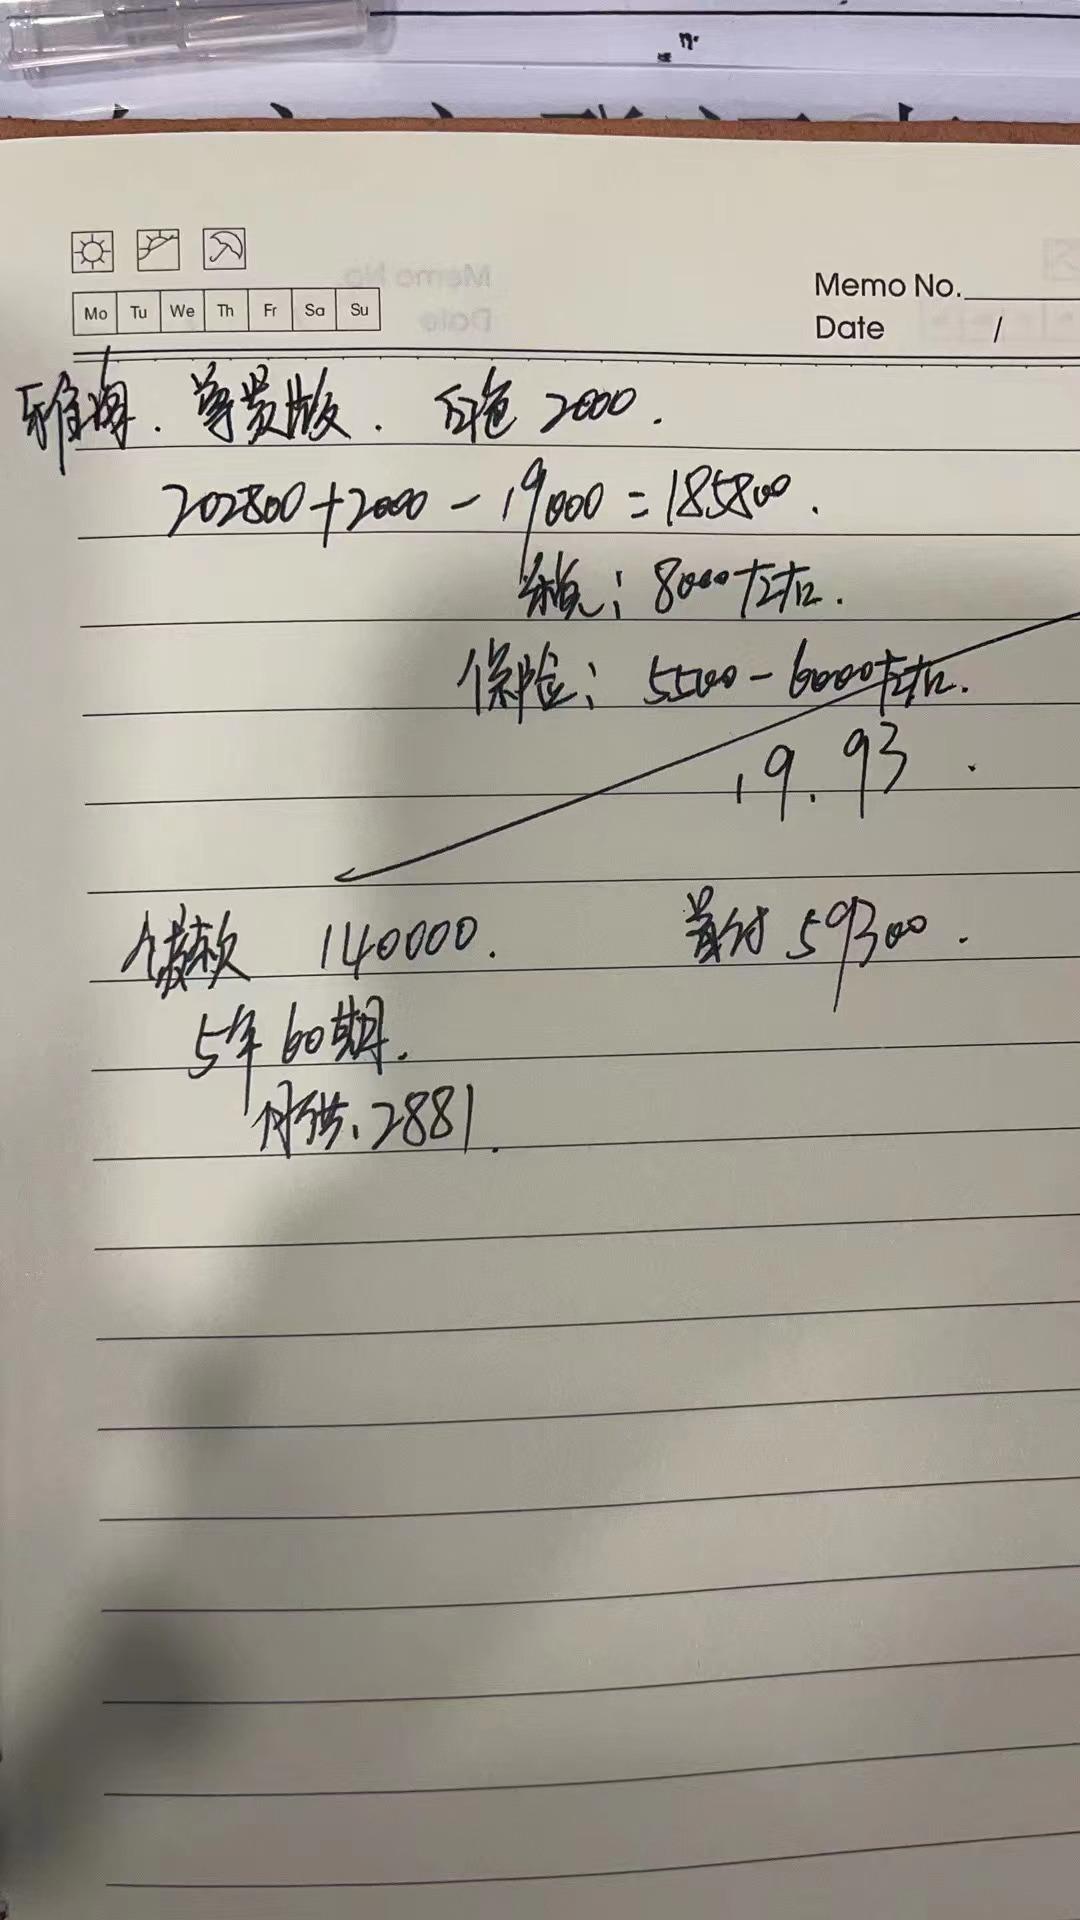 Memo No.
Mo Tu We Th Fr Sa Su
Date /
尊贵版. 白色 2000.
202800+2000-19000=185800.
8000左右.
保险: 5500-6000左右.
19.93.
贷款 140000. 首付 59300.
5年 60期.
月供: 2881.